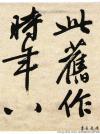 此舊作
時年八